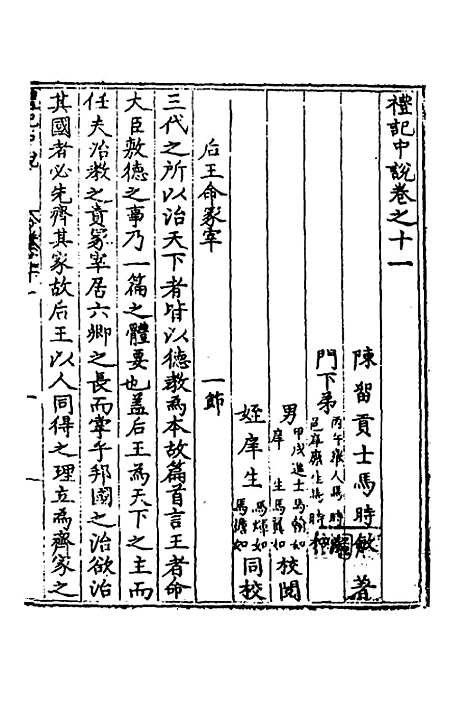 禮記中説卷之十一
陳畱貢士馬時敏著
門下弟丙午舉人馬時
邑庠廪生馬時
男甲戌進士馬翰如
庠生馬 如校閱
姪庠生馬 如
馬 如同校
后王命冢宰一節
三代之所以治天下者皆以德教為本故篇首言王者命
大臣敷德之事乃一篇之體要也盖后王為天下之主而
任夫治教之責冢宰居六卿之長而掌乎邦國之治欲治
其國者必先齊其家故后王以人同得之理立為齊家之